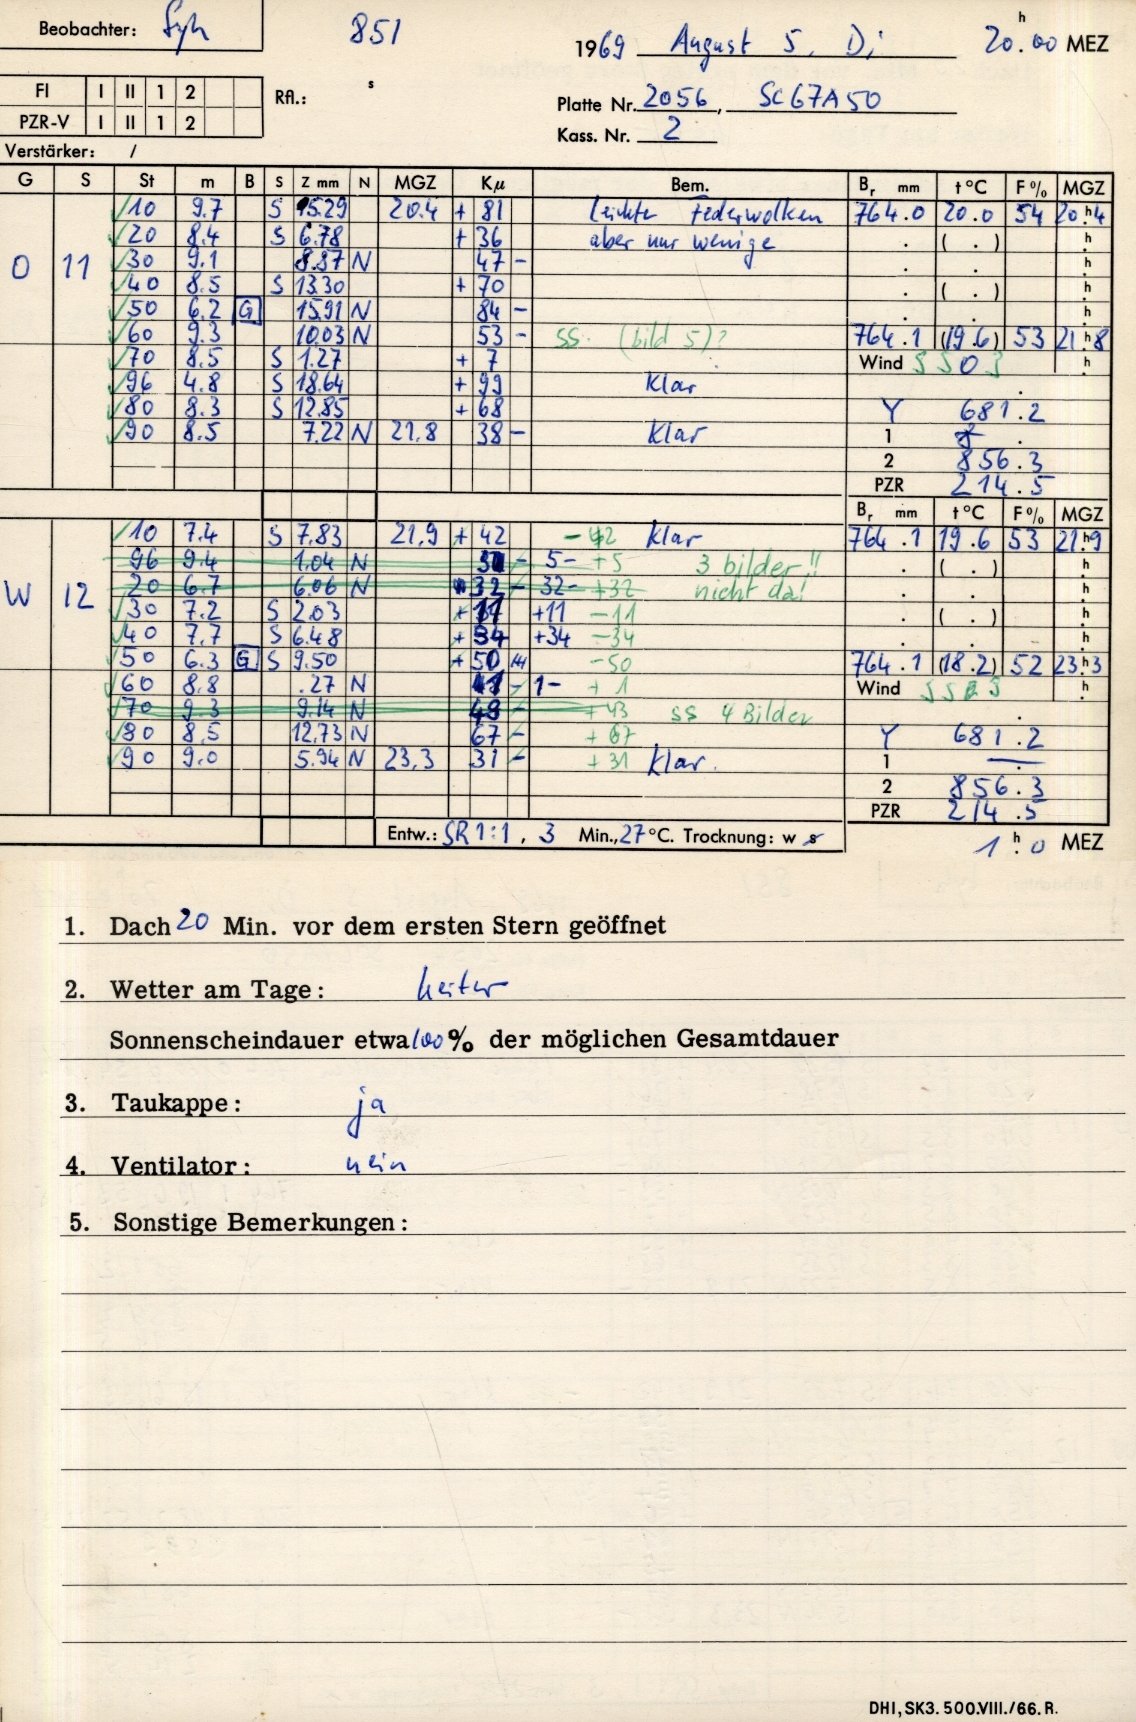 Beobachter: 851 1969 August 5, Di 20.h00 MEZ
FI I II 1 2 Rfl.: s Platte Nr. 2056, SC67A50
PZR-V I II 1 2 Kass. Nr. 2
Verstärker: /
G S St m B S Z mm N MGZ Kµ Bem. Br mm t °C F % MGZ
10 9.7 S 15.29 20.4 + 81 Leichte Federwolken 764.0 20.0 54 20.h4
20 8.4 S 6.78 + 36 aber nur wenige . ( . ) h
O 11 30 9.1 8.87 N 47 - . . h
40 8.5 S 13.30 + 70 . ( . ) h
50 6.2 G 15.91 N 84 - . . h
60 9.3 10.03 N 53 - ss. (bild 5)? 764.1 (19.6) 53 21.h8
70 8.5 S 1.27 + 7 Wind SSO 3 h
96 4.8 S 18.64 + 99 Klar .
80 8.3 S 12.85 + 68 Y 681.2
90 8.5 7.22 N 21.8 38 - Klar 1 .
2 856.3
PZR 214.5
Br mm t °C F % MGZ
10 7.4 S 7.83 21,9 + 42 - 42 Klar 764.1 19.6 53 21.h9
96 9.4 1.04 N - 5- +5 3 bilder!! . ( . ) h
20 6.7 6.06 N 32 - 32- +32 nicht da! . . h
W 12 30 7.2 S 2.03 + 11 +11 -11 . ( . ) h
40 7.7 S 6.48 + 34 +34 -34 . . h
50 6.3 G S 9.50 + 50 -50 764.1 (18.2) 52 23.h3
60 8.8 .27 N - 1- + 1 Wind h
70 9.3 9.14 N 48 - + 43 ss 4 Bilder .
80 8.5 12.73 N 67 - + 67 Y 681.2
90 9.0 5.94 N 23,3 31 - + 31 Klar. 1 .
2 856.3
PZR 214.5
Entw.: SR 1:1, 3 Min., 27 °C. Trocknung: w s 1h.0 MEZ
1. Dach 20 Min. vor dem ersten Stern geöffnet
2. Wetter am Tage: heiter
Sonnenscheindauer etwa 100 % der möglichen Gesamtdauer
3. Taukappe: ja
4. Ventilator: nein
5. Sonstige Bemerkungen:
DHI, SK3. 500.VIII./66. R.